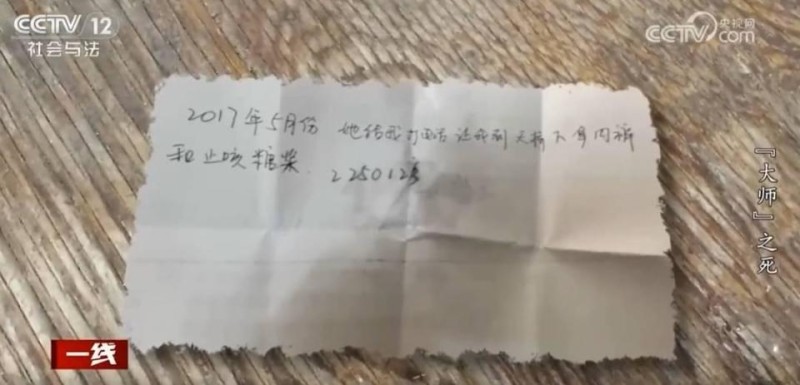 CCTV 12
社会与法
CCTV 央视网
com
2017年5月份 她给我打电话让我到天桥下拿内裤
和止咳糖浆. 225012
『大师』之死
一线